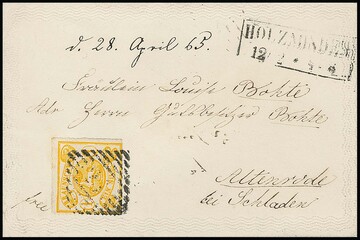 d. 28. April 65.
HOLZMIND
12
Fräulein Louise Bohte
Adr. Herrn Gutsbesitzer Bohte
Altenrode
bei Schladen
free